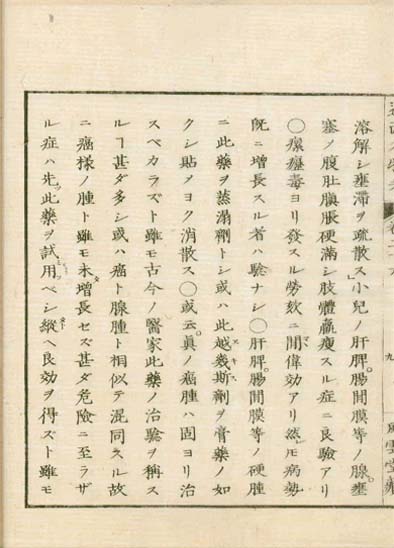 溶解シ壅滞ヲ疏散ス小兒ノ肝脾。腸間膜等ノ腺。壅
塞ノ腹肚膹脹硬滿シ肢體羸瘦スル症ニ良驗アリ
〇瘰癧毒ヨリ發スル勞欬ニ間偉効アリ然𪜈病勢
既ニ增長スル者ハ驗ナシ〇肝脾。腸間膜等ノ硬腫
ニ此藥ヲ蒸溻劑トシ或ハ此越幾斯劑ヲ膏藥ノ如
クシ貼メヨク消散ス〇或云。眞ノ癌腫ハ固ヨリ治
スベカラズト雖モ古今ノ醫家此藥ノ治驗ヲ稱ス
ルヿ甚ダ多シ或ハ癌ト腺腫ト相似テ混同スル故
ニ癌樣ノ腫ト雖モ未增長セズ甚ダ危險ニ至ラザ
ル症ハ先ツ此藥ヲ試用ベシ縱ヘ良効ヲ得ズト雖モ